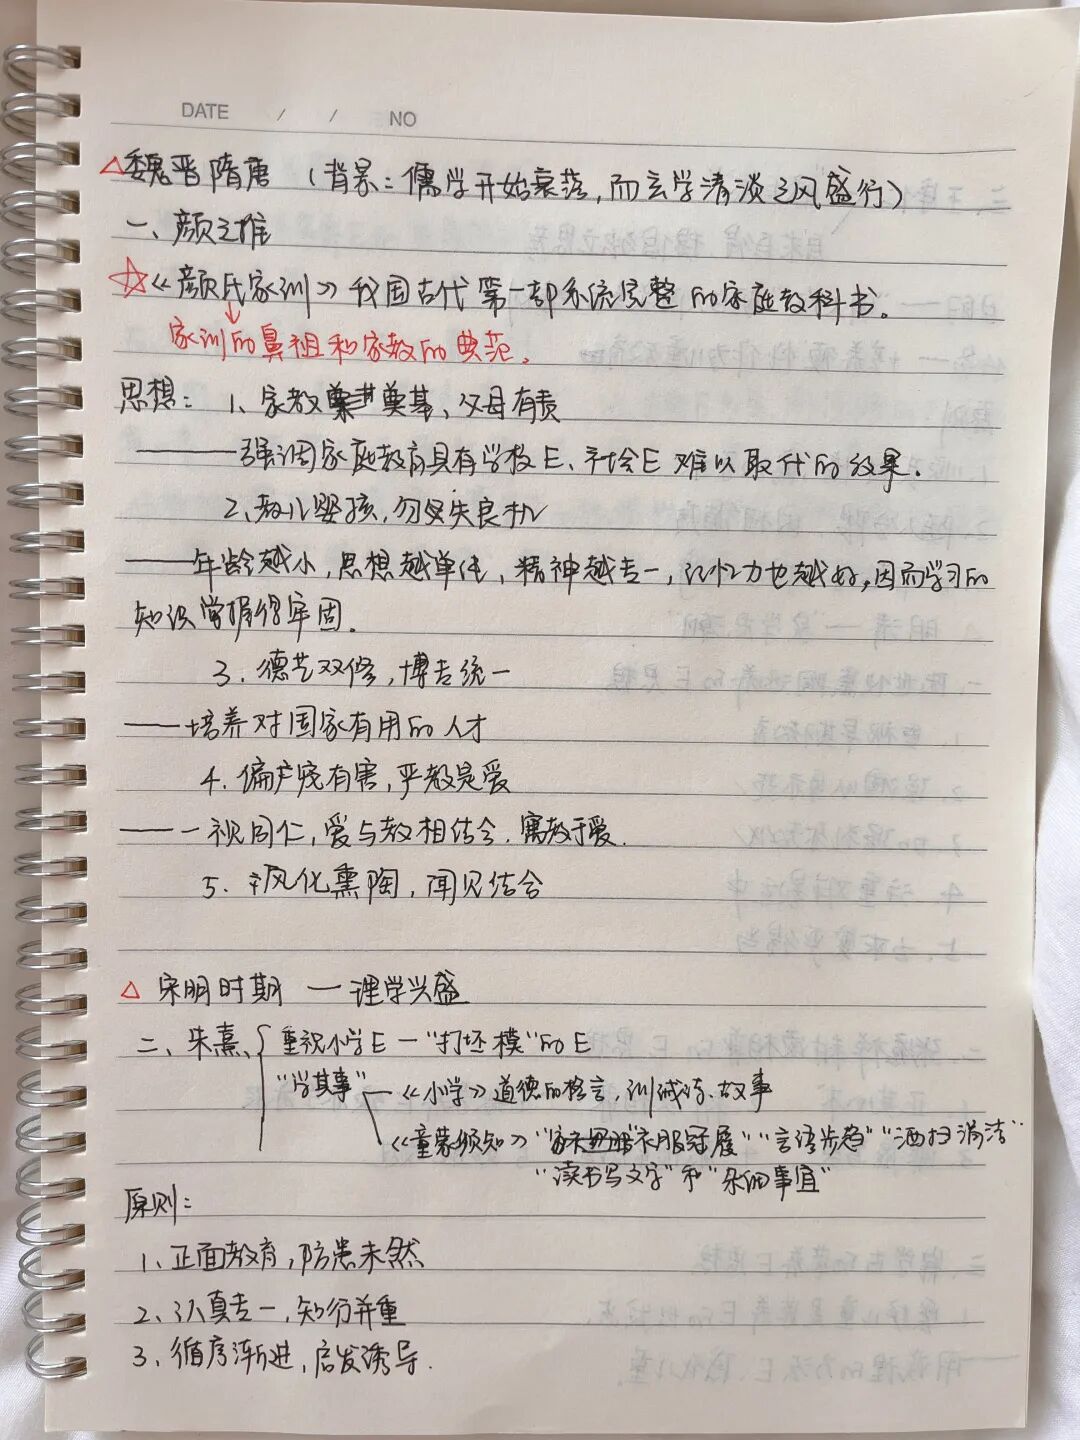 DATE / / NO
△魏晋隋唐 (背景:儒学开始衰落,而玄学清淡之风盛行)
一、颜之推
☆《颜氏家训》我国古代第一部系统完整的家庭教科书。
家训的鼻祖和家教的典范。
思想: 1、家教奠基、父母有责
——强调家庭教育具有学校E、社会E难以取代的效果.
2、教儿婴孩,勿失良机
——年龄越小,思想越单纯,精神越专一,记忆力也越好,因而学习的
知识掌握得牢固.
3. 德艺双修,博专统一
——培养对国家有用的人才
4. 偏宠有害,严教是爱
——一视同仁,爱与教相结合.寓教于爱.
5. 风化熏陶,闻见结合
△ 宋明时期 —理学兴盛
二、朱熹、重视小学E—“打坯模”的E
“学其事” 《小学》道德的格言,训诫诗.故事
《童蒙须知》“衣服冠履”“言语步趋”“洒扫涓洁”
“读书写文字”和“杂细事宜”
原则:
1、正面教育,防患未然
2、认真专一,知行并重
3、循序渐进,启发诱导.